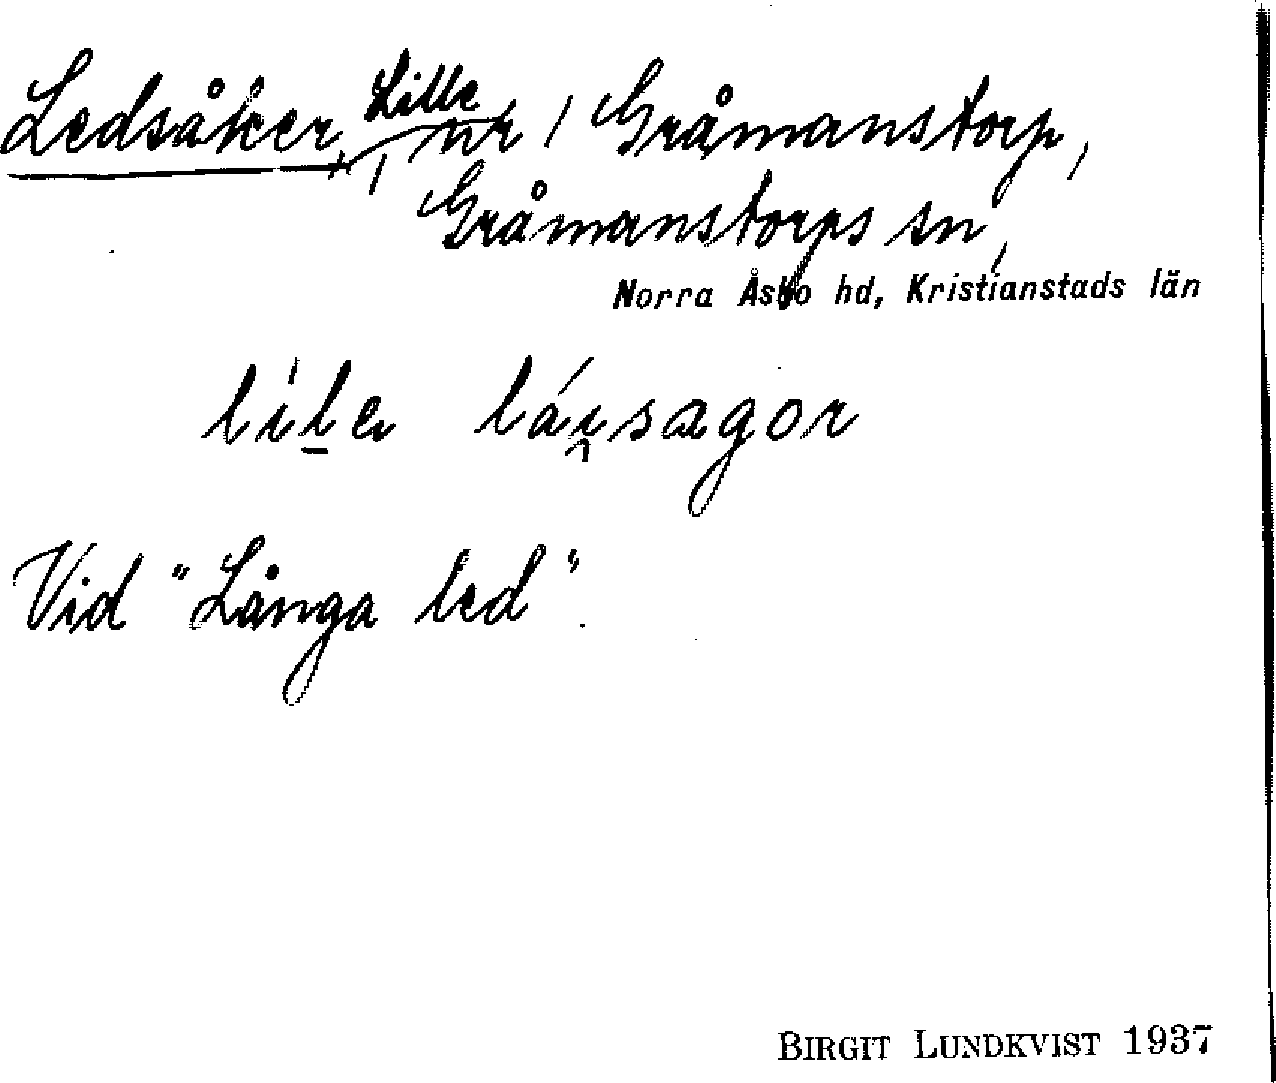 Ledsåker, Lille, nr 1 Gråmanstorp,
Gråmanstorps sn,
Norra Åsbo hd, Kristianstads län
líl̲e láı̯sagor
Vid "Långa led".
BIRGIT LUNDKVIST 1937